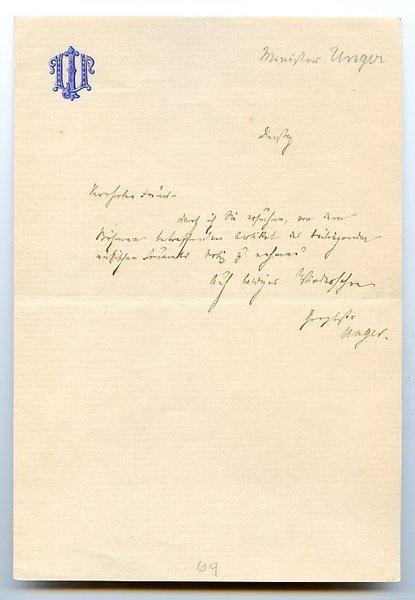 Minister Unger
Dienstag
Verehrter Freund
darf ich Sie ersuchen, von dem
Böhmen betreffenden Artikel der beiliegenden
Notiz zu nehmen?
Auf baldiges Wiedersehen
Unger.
69